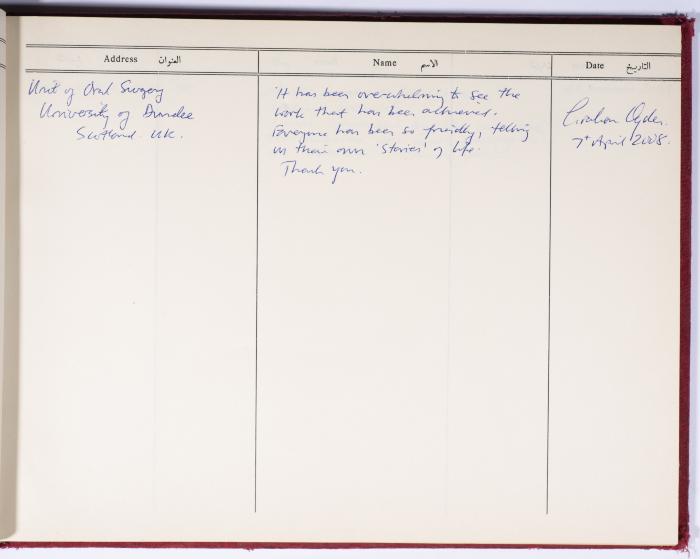 Address العنوان
Name الاسم
Date التاريخ
Unit of Oral Surgery
University of Dundee
Scotland. UK.
It has been overwhelming to see the
work that has been achieved.
Everyone has been so friendly, telling
us their own 'stories' of life.
Thank you.
Graham Ogden.
7th April 2008.